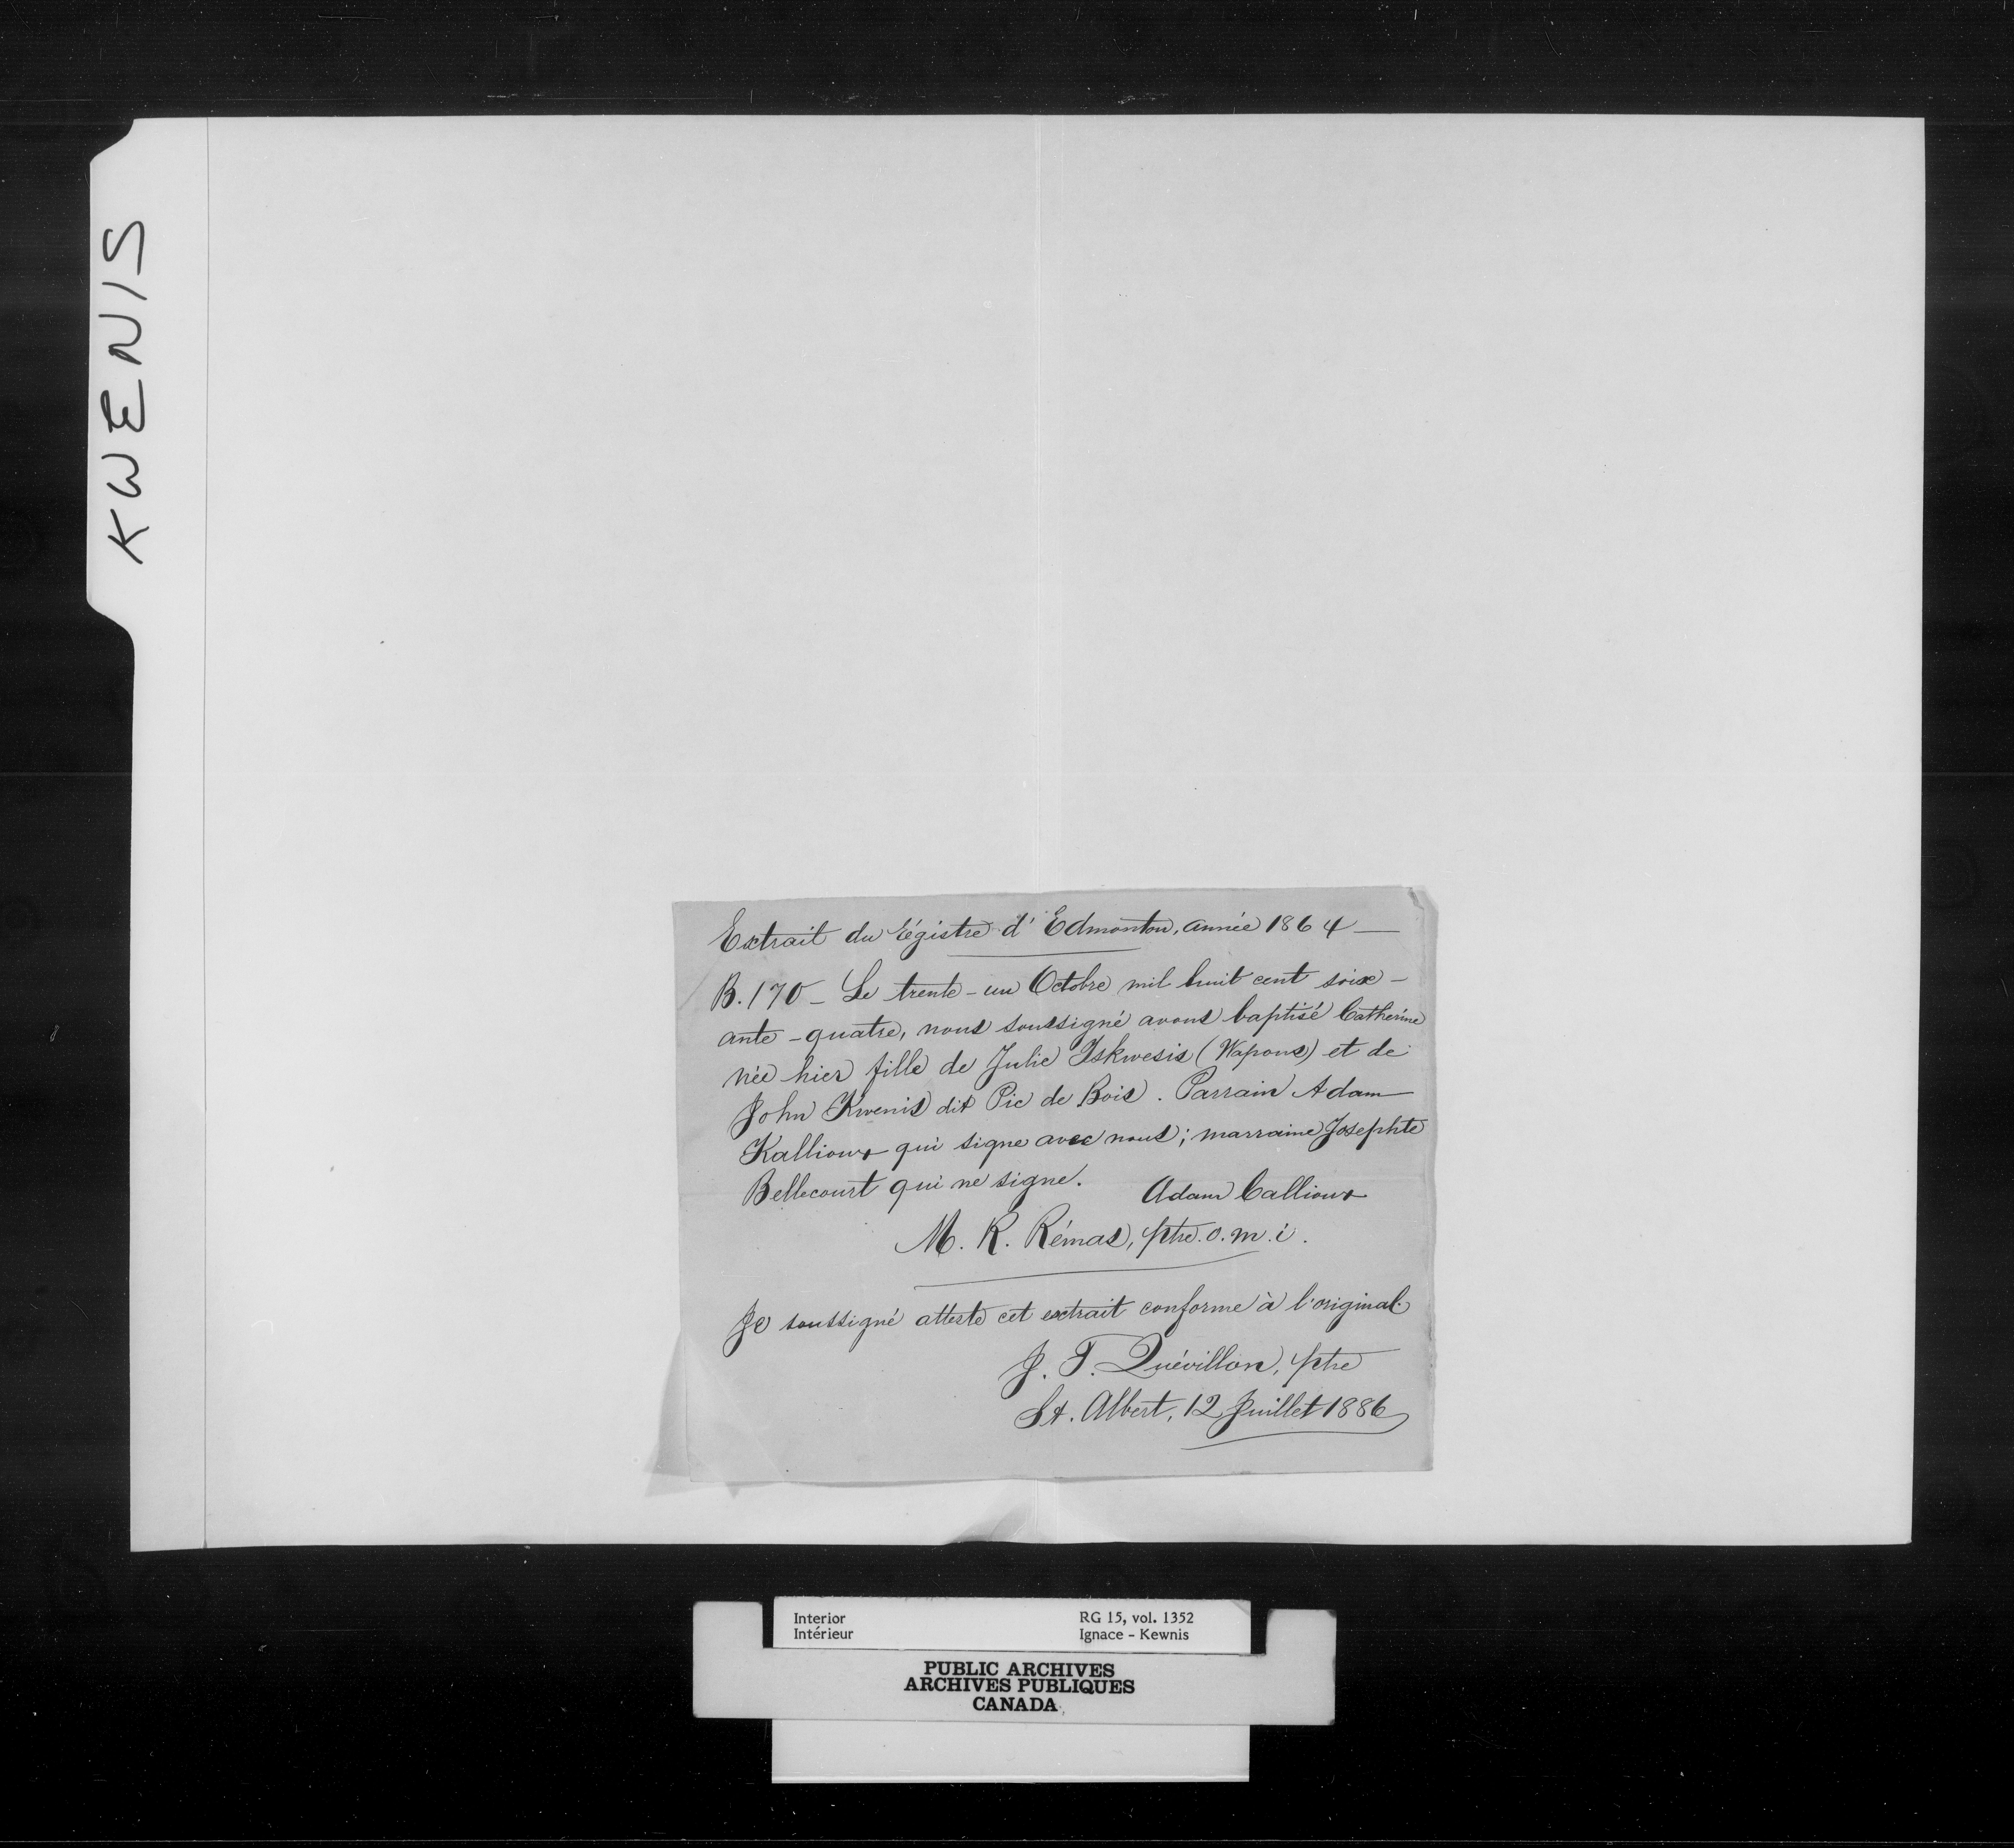 KWENIS
Extrait du régistre d'Edmonton, année 1864 —
B. 170 – Le trente-un Octobre mil huit cent soix-
ante-quatre, nous soussigné avons baptisé Catherine
née hier fille de Julie Iskwesis (Wapous) et de
John Kwenis dit Pic de Bois. Parrain Adam
Kallioux qui signe avec nous; marraine Josephte
Bellecourt qui ne signe. Adam Callioux
M. R. Rémas, ptre. o.m.i.
Je soussigné atteste cet extrait conforme à l'original.
J. T. Quévillon, ptre
St. Albert, 12 Juillet 1886
Interior RG 15, vol. 1352
Intérieur Ignace – Kewnis
PUBLIC ARCHIVES
ARCHIVES PUBLIQUES
CANADA